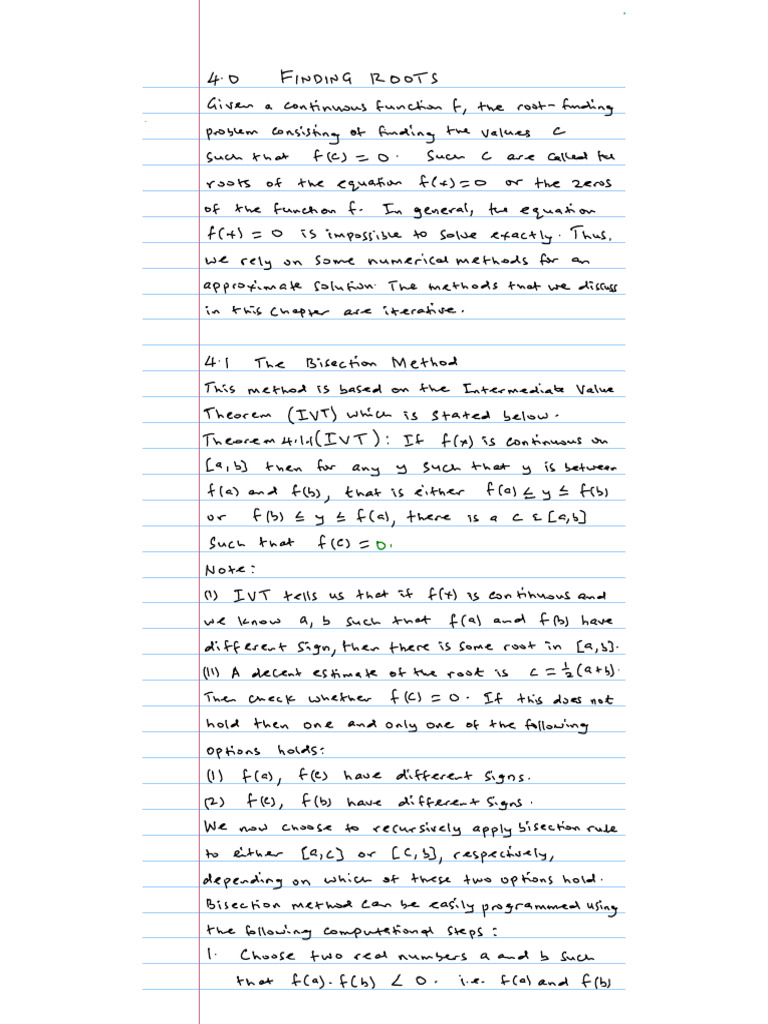 4.0 FINDING ROOTS
Given a continuous function f, the root-finding
problem consisting of finding the values c
such that f(c) = 0. Such c are called the
roots of the equation f(x)=0 or the zeros
of the function f. In general, the equation
f(x) = 0 is impossible to solve exactly. Thus,
we rely on some numerical methods for an
approximate solution. The methods that we discuss
in this chapter are iterative.
4.1 The Bisection Method
This method is based on the Intermediate Value
Theorem (IVT) which is stated below.
Theorem 4.1.1 (IVT): If f(x) is continuous on
[a,b] then for any y such that y is between
f(a) and f(b), that is either f(a) ≤ y ≤ f(b)
or f(b) ≤ y ≤ f(a), there is a c ε [a,b]
such that f(c) = 0.
Note:
(i) IVT tells us that if f(x) is continuous and
we know a, b such that f(a) and f(b) have
different sign, then there is some root in [a,b].
(ii) A decent estimate of the root is c = ½(a+b).
Then check whether f(c) = 0. If this does not
hold then one and only one of the following
options holds:
(1) f(a), f(c) have different signs.
(2) f(c), f(b) have different signs.
We now choose to recursively apply bisection rule
to either [a,c] or [c,b], respectively,
depending on which of these two options hold.
Bisection method can be easily programmed using
the following computational steps:
1. Choose two real numbers a and b such
that f(a).f(b) < 0. i.e. f(a) and f(b)